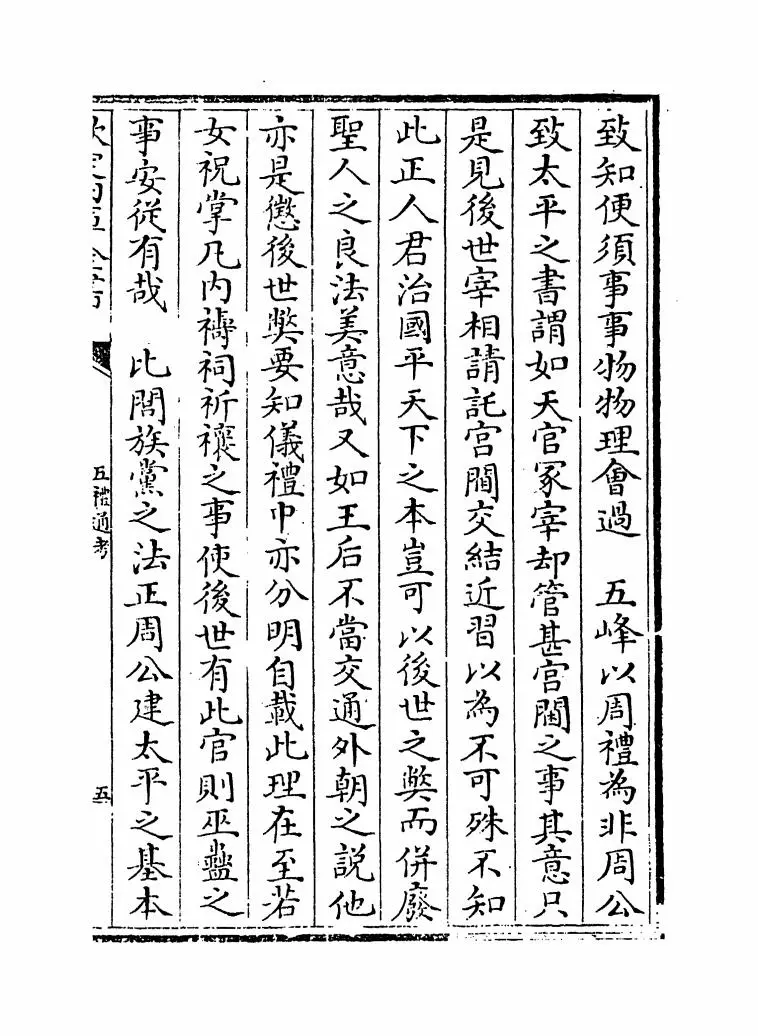 致知便須事事物物理會過　五峰以周禮為非周公
致太平之書謂如天官冢宰却管甚宫閫之事其意只
是見後世宰相請託宫闈交結近習以為不可殊不知
此正人君治國平天下之本豈可以後世之弊而併廢
聖人之良法美意哉又如王后不當交通外朝之説他
亦是懲後世弊要知儀禮中亦分明自載此理在至若
女祝掌凡内禱祠祈禳之事使後世有此官則巫蠱之
事安從有哉　比閭族黨之法正周公建太平之基本
欽定四庫全書
五禮通考
五